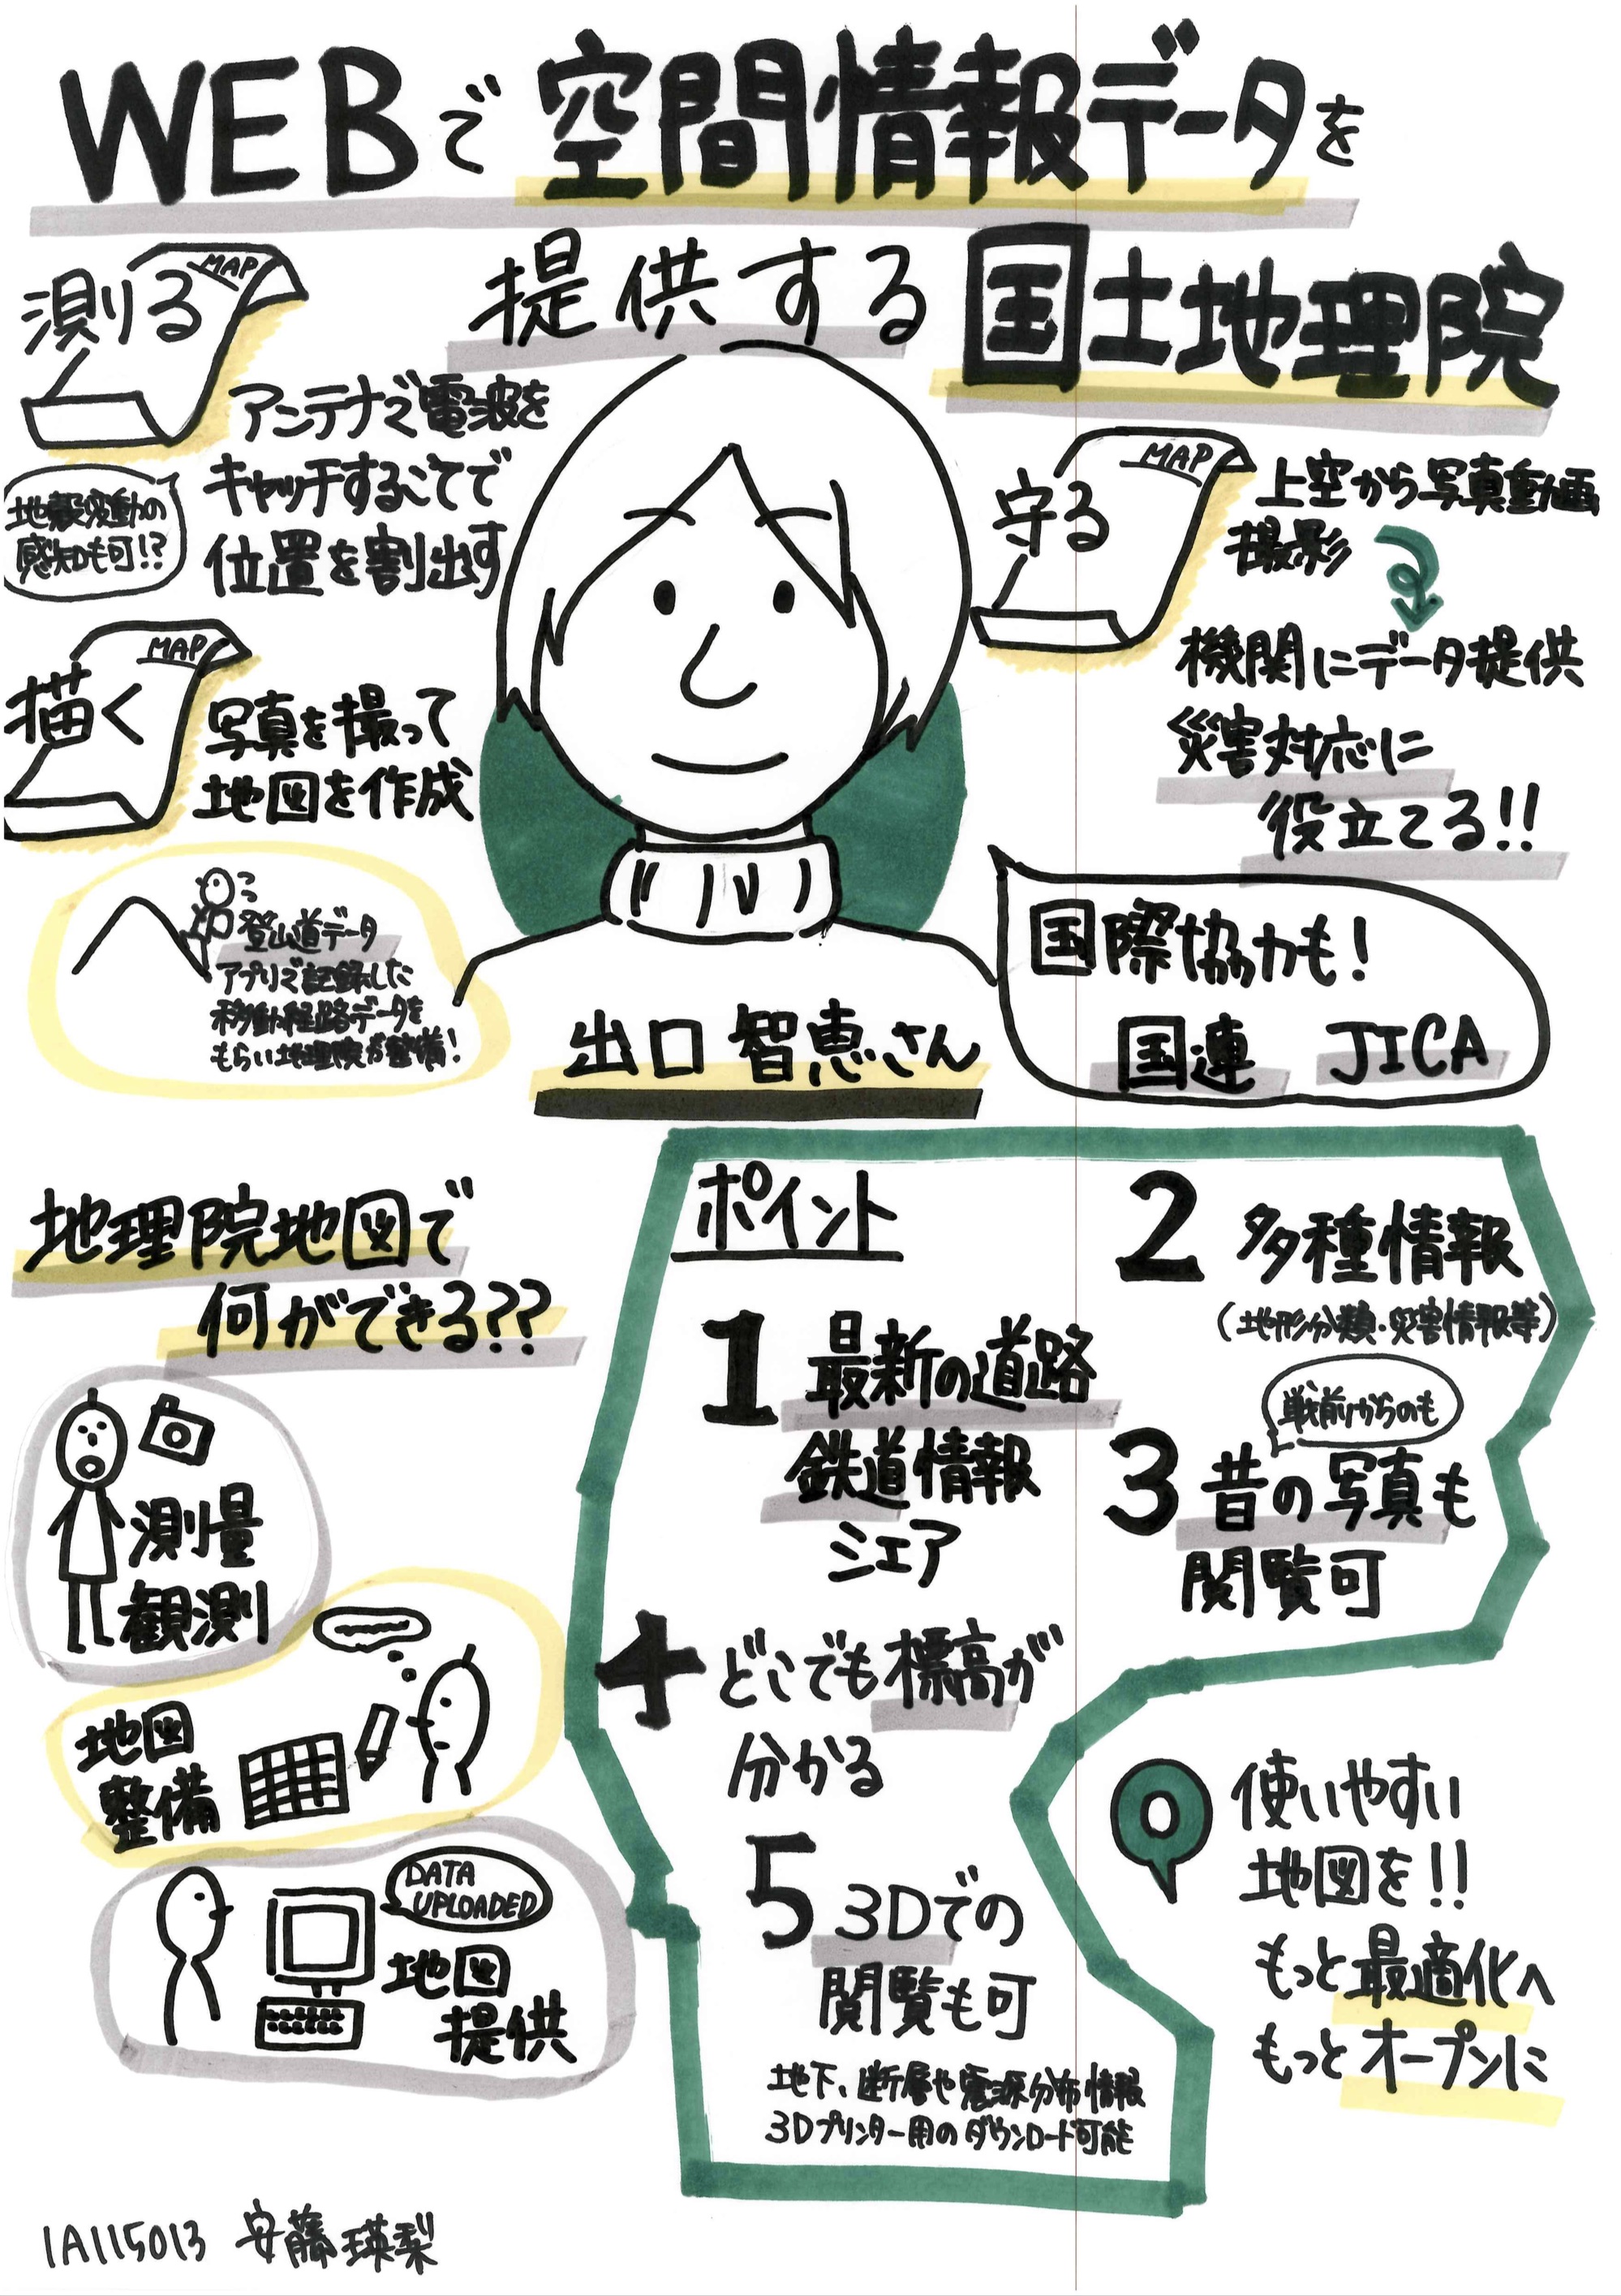 WEBで空間情報データを
提供する国土地理院
MAP
測る
アンテナで電波を
キャッチすることで
位置を割出す
地殻変動の
感知も可!?
MAP
描く
写真を撮って
地図を作成
登山道データ
アプリで記録した
移動経路データを
もらい地理院が整備!
出口 智恵さん
MAP
守る
上空から写真動画
撮影
機関にデータ提供
災害対応に
役立てる!!
国際協力も!
国連 JICA
地理院地図で
何ができる??
測量
観測
地図
整備
DATA
UPLOADED
地図
提供
ポイント
1 最新の道路
鉄道情報
シェア
2 多種情報
(地形分類・災害情報等)
戦前からのも
3 昔の写真も
閲覧可
4 どこでも標高が
分かる
5 3Dでの
閲覧も可
地下、断層や震源分布情報
3Dプリンター用のダウンロード可能
使いやすい
地図を!!
もっと最適化へ
もっとオープンに
1A115013 安藤瑛梨